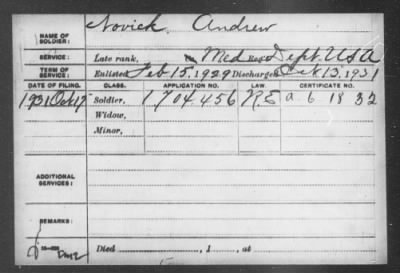 NAME OF SOLDIER: Novick, Andrew
SERVICE: Late rank, Med Reg't Dept. USA
TERM OF SERVICE: Enlisted Feb 15, 1929 Discharged Oct 13, 1931
DATE OF FILING. CLASS. APPLICATION NO. LAW. CERTIFICATE NO.
1931 Oct 17 Soldier, 1704456 R.E a 6 18 32
Widow,
Minor,
ADDITIONAL SERVICES:
REMARKS:
Died , 1 , at